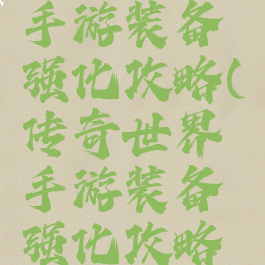 手游装备
强化攻略(
传奇世界
手游装备
强化攻略